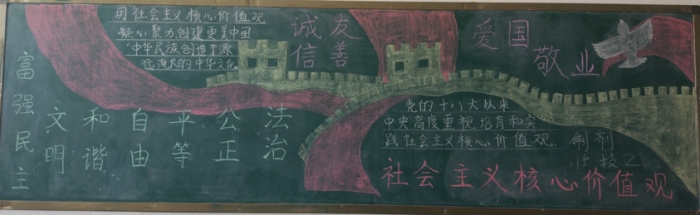 用社会主义核心价值观
凝心聚力创建更美中国
"中华民族创造了源
远流长的中华文化
诚信
友善
爱国
敬业
富强民主
文明
和谐
自由
平等
公正
法治
党的十八大以来
中央高度重视培育和实
践社会主义核心价值观
制剂
15技2
社会主义核心价值观